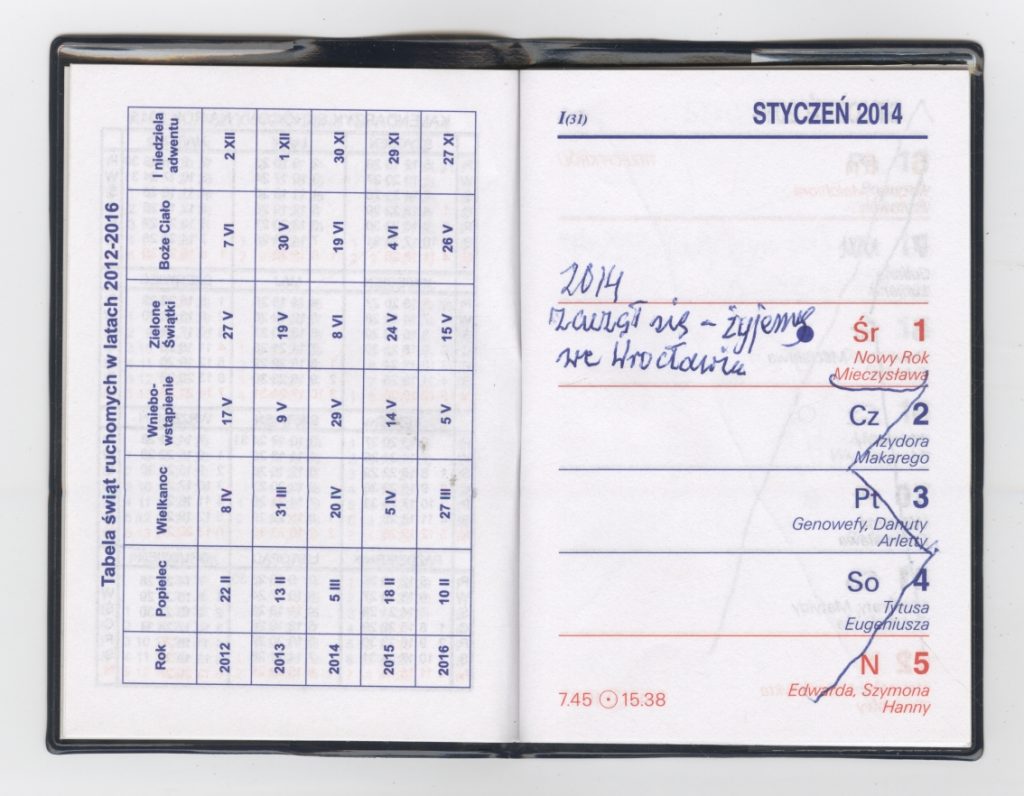 Tabela świąt ruchomych w latach 2012-2016
Rok Popielec Wielkanoc Wniebo-wstąpienie Zielone Świątki Boże Ciało I niedziela adwentu
2012 22 II 8 IV 17 V 27 V 7 VI 2 XII
2013 13 II 31 III 9 V 19 V 30 V 1 XII
2014 5 III 20 IV 29 V 8 VI 19 VI 30 XI
2015 18 II 5 IV 14 V 24 V 4 VI 29 XI
2016 10 II 27 III 5 V 15 V 26 V 27 XI
I(31) STYCZEŃ 2014
2014
zaczął się – żyjemy
we Wrocławiu
Śr 1
Nowy Rok
Mieczysława
Cz 2
Izydora
Makarego
Pt 3
Genowefy, Danuty
Arletty
So 4
Tytusa
Eugeniusza
N 5
Edwarda, Szymona
Hanny
7.45 15.38